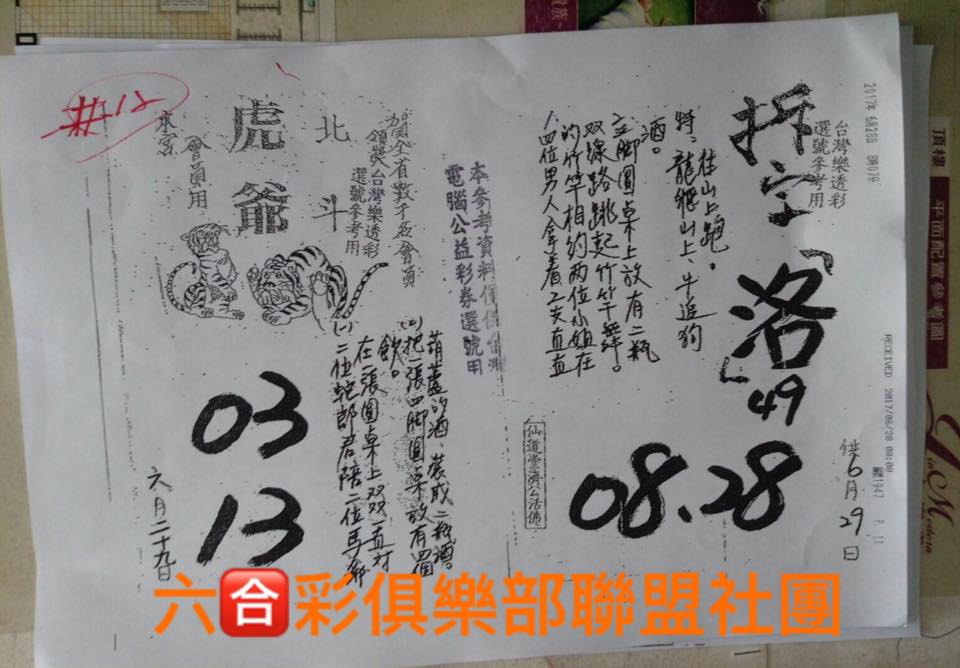 拆字「洛」
49
08.28
台灣樂透彩
選號參考用
2017年 6月28日
RECEIVED 2017/06/28 08:08
供6月29日
往山上跑。
特、龍繩山上、牛追狗
酒。
主腳圓桌上放有二瓶
双線路跳起竹竿舞。
的竹竿相約兩位小姐在
四位男人拿着工夫直直
仙道堂濟公活佛
本參考資料僅供台灣
電腦公益彩券選號用
賀全省數才名會員
領獎台灣樂透彩
選號參考用
北斗
虎爺
會員用
#12
葫蘆的酒、裝成二瓶酒。
(2)把一張四腳圓桌放有個
飲。
在一張圓桌上双双一直对
(一)二位蛇郎君陪二位馬爺
03
13
六月二十九日
頂樓
平面配置參考圖
六合彩俱樂部聯盟社團